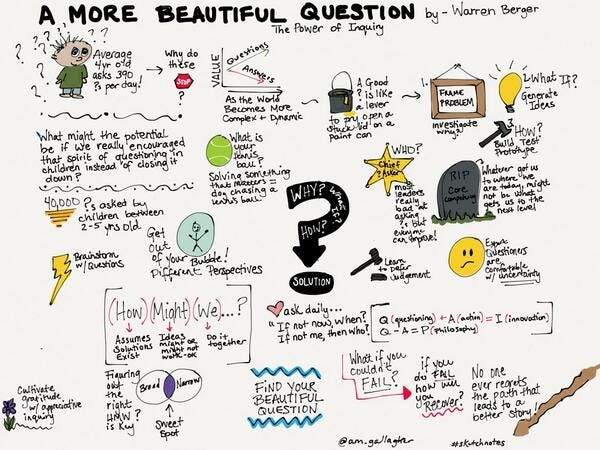 A MORE BEAUTIFUL QUESTION by - Warren Berger
The Power of Inquiry
? ? ? ? ? ? ?
Average
4yr old
asks 390
?s per day!
Why do
these
STOP
?
VALUE
Questions
Answers
As the World
Becomes More
Complex + Dynamic
A Good
? is like
a lever
to pry open a
stuck lid on a
paint can
1.
FRAME
PROBLEM
investigate
why?
2. What If?
Generate
Ideas
3 How?
Build, Test
Prototype
What might the potential
be if we really encouraged
that spirit of questioning in
children instead of closing it
down?
What is
your
tennis
ball!
Solving something
that matters =
dog chasing a
tennis ball
WHO?
Chief
? Asker
most
leaders
really
bad at
asking
?s but
everyone
can improve!
RIP
Core
competency
Whatever got us
to where we
are today, might
not be what
gets us to the
next level
40,000 ?s asked by
children between
2-5 yrs old
Get
out
of your Bubble!
Different Perspectives
WHY?
WHAT IF?
HOW?
SOLUTION
Brainstorm
w/ Questions
Learn
to Defer
Judgement
Expert
Questioners
are
comfortable
w/ uncertainty
(How) (Might) (We)...?
Assumes
Solutions
Exist
Ideas
might or
might not
work-ok
Do it
together
ask daily...
"If not now, When?
If not me, then who?"
Q (questioning) + A (action) = I (innovation)
Q - A = P (Philosophy)
Cultivate
gratitude
w/ appreciative
inquiry
Figuring
out
the
right
HMW?
is key
Broad
Narrow
Sweet
Spot
FIND YOUR
BEAUTIFUL
QUESTION
What if you
couldn't
FAIL?
if you
do FAIL
how will
you
Recover?
No one
ever regrets
the path that
leads to a
better story!
@am.gallagher
#sketchnotes